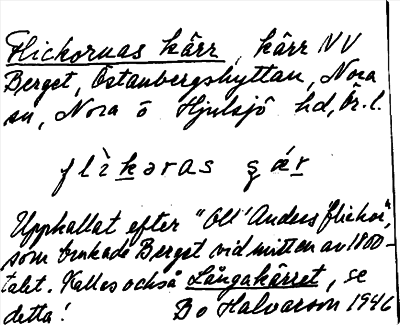 Flickornas kärr, kärr NV
Berget, Östanbergshyttan, Nora
sn, Nora o Hjulsjö hd, Ör. l.
flìkəras ʂár
Upphallat efter "Oll' Anders flickor",
som brukade Berget vid mitten av 1800-
talet. Kallas också Långakärret, se
detta! Bo Halvarson 1946